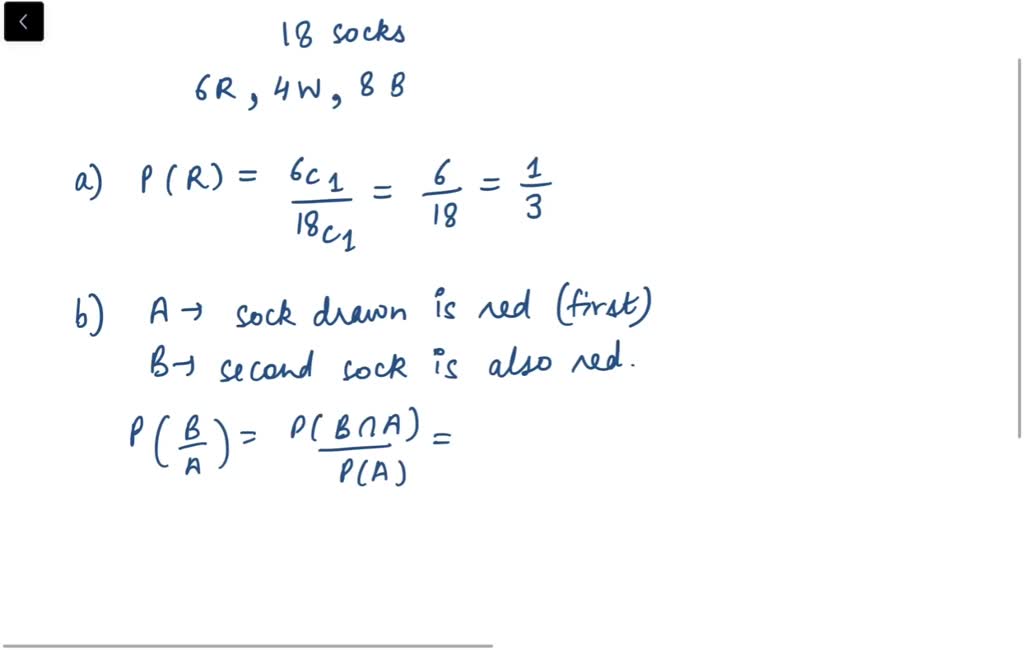 18 socks
6R, 4W, 8 B
a) P(R) = 6C1/18C1 = 6/18 = 1/3
b) A → sock drawn is red (first)
B → second sock is also red.
P(B/A) = P(B∩A)/P(A) =